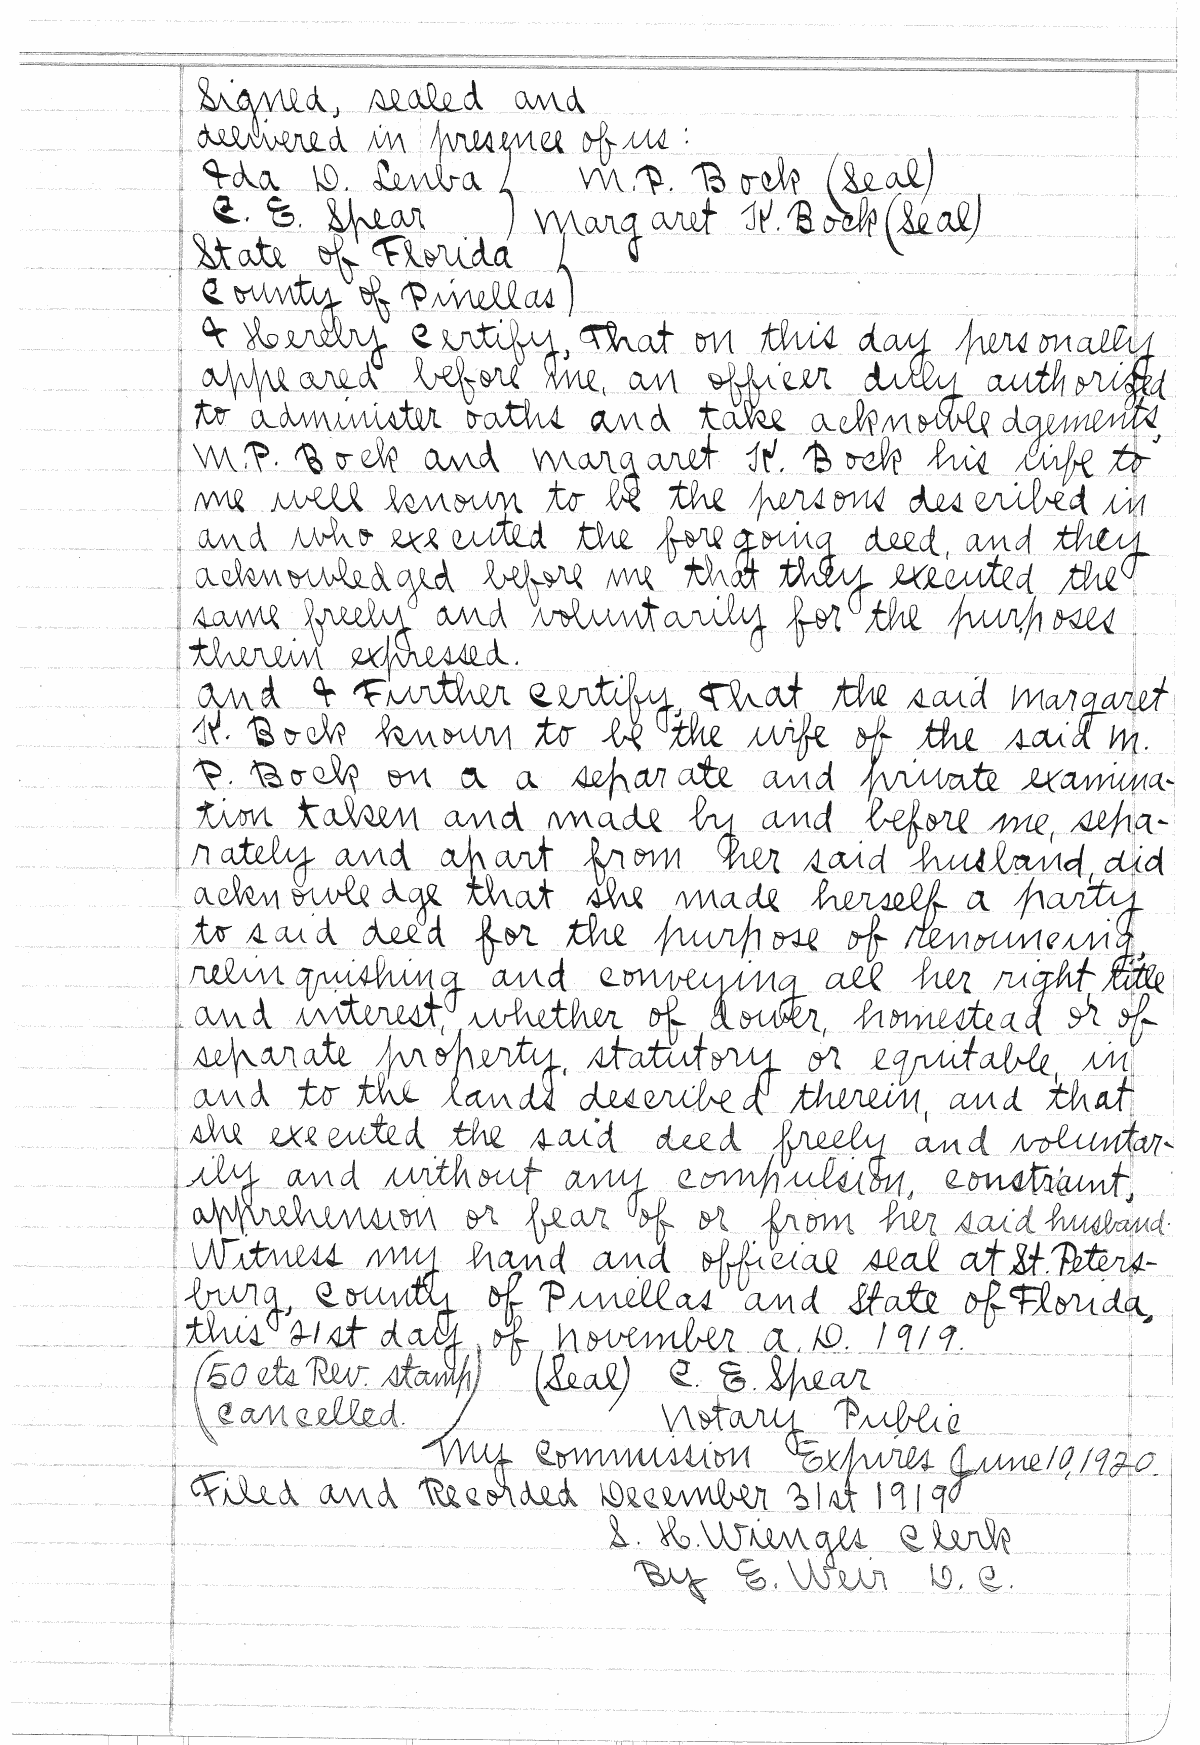 Signed, sealed and
delivered in presence of us:
Ida D. Lenba } M.P. Bock (Seal)
C. E. Spear ) Margaret K. Bock (Seal)
State of Florida }
County of Pinellas)
I Hereby Certify, That on this day personally
appeared before me, an officer duly authorized
to administer oaths and take acknowledgements,
M.P. Bock and Margaret K. Bock his wife to
me well known to be the persons described in
and who executed the foregoing deed, and they
acknowledged before me that they executed the
same freely and voluntarily for the purposes
therein expressed.
And I Further Certify, That the said Margaret
K. Bock known to be the wife of the said M.
P. Bock on a a separate and private examina-
tion taken and made by and before me, sepa-
rately and apart from her said husband, did
acknowledge that she made herself a party
to said deed for the purpose of renouncing,
relinquishing and conveying all her right, title
and interest, whether of dower, homestead or of
separate property, statutory or equitable, in
and to the lands described therein, and that
she executed the said deed freely and voluntar-
ily and without any compulsion, constraint,
apprehension or fear of or from her said husband.
Witness my hand and official seal at St. Peters-
burg, County of Pinellas and State of Florida,
this 21st day of November A.D. 1919.
(50 cts Rev. stamp) (Seal) C. E. Spear
(Cancelled. ) Notary Public
My Commission Expires June 10, 1920.
Filed and Recorded December 31st 1919
S. H. Wienges Clerk
By E. Weir D.C.